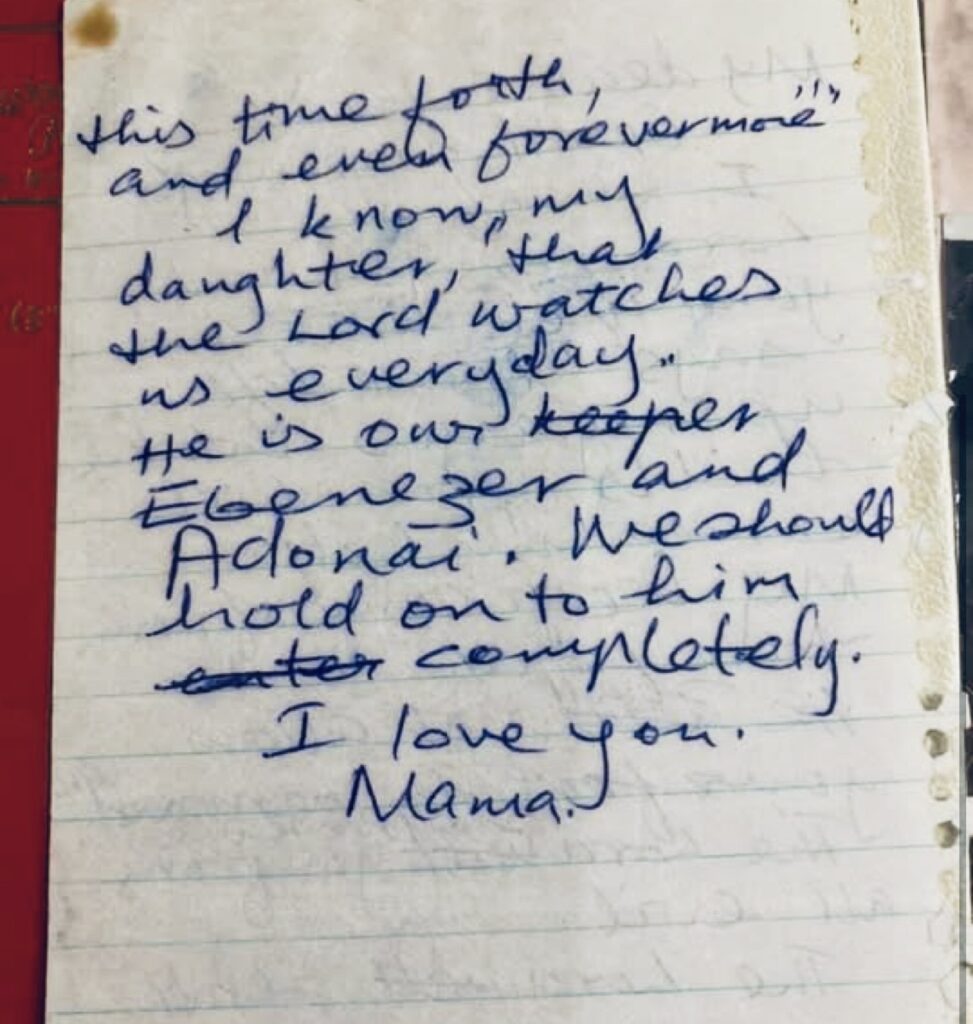 this time forth,
and even forevermore""
I know, my
daughter, that
the Lord watches
us everyday..
He is our keeper
Ebenezer and
Adonai. We should
hold on to him
completely.
I love you.
Mama.